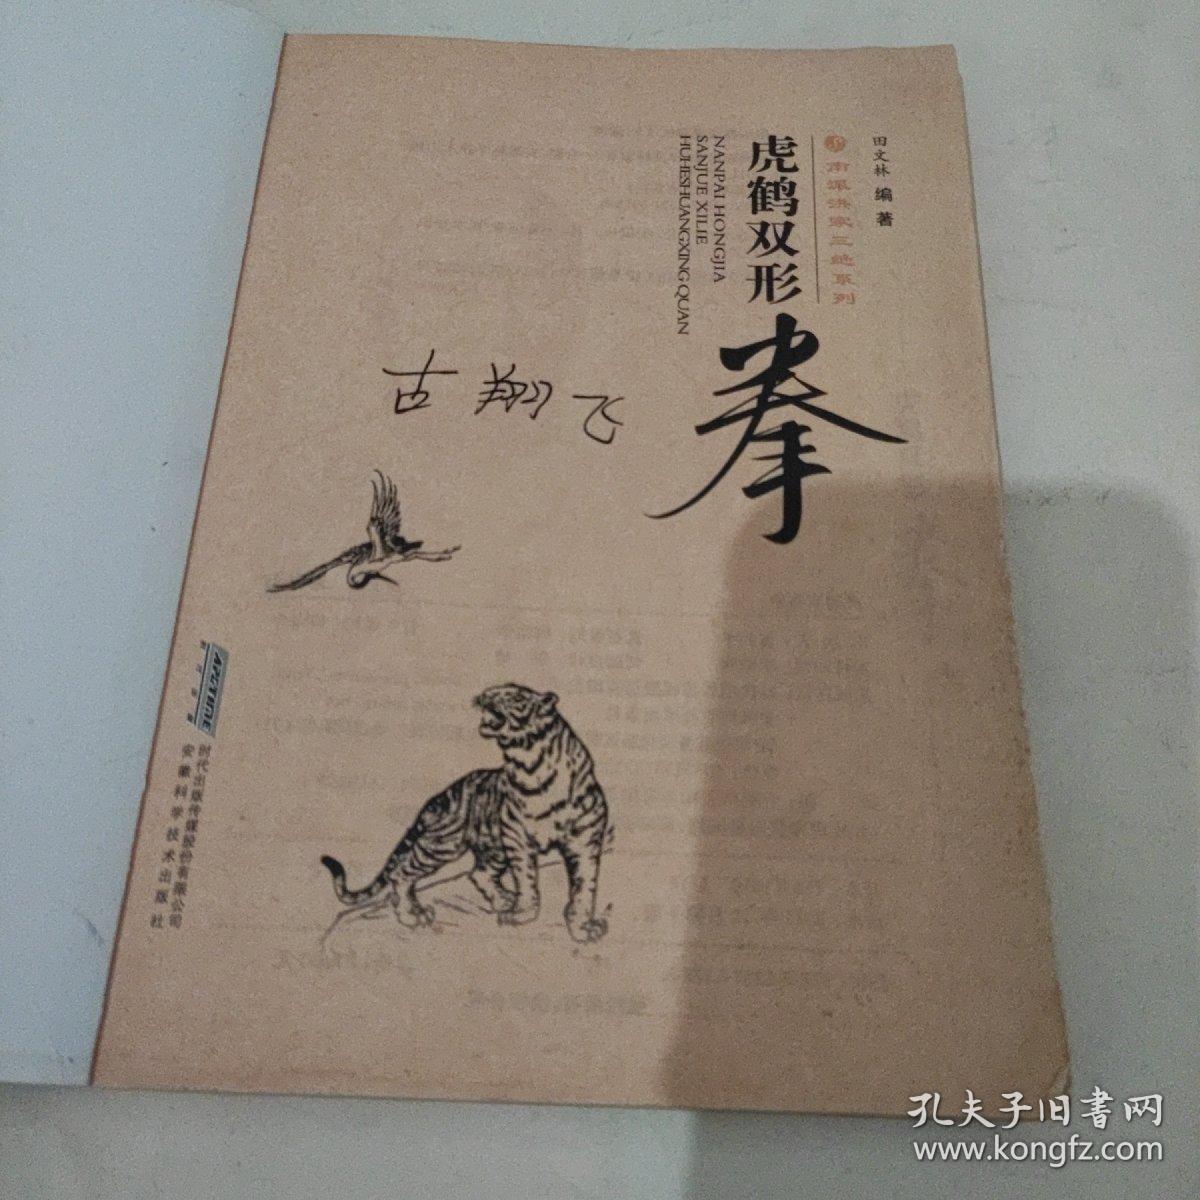 田文林 编著
南派洪家三绝系列
虎鹤双形拳
NANPAI HONGJIA
SANJUE XILIE
HUHESHUANGXING QUAN
古翔飞
时代出版传媒股份有限公司
安徽科学技术出版社
孔夫子旧书网
www.kongfz.com